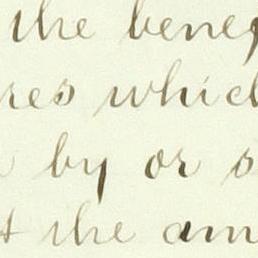 the benef
res which
by or s
t the am